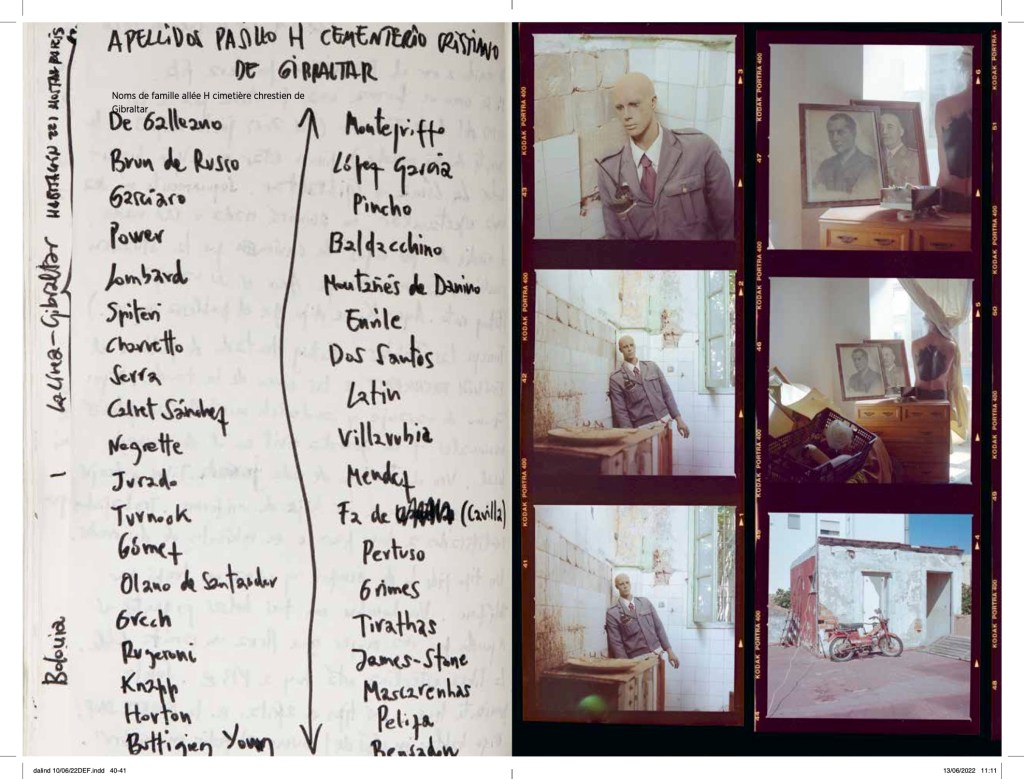 APELLIDOS PASILLO H CEMENTERIO CRISTIANO
DE GIBRALTAR
Noms de famille allée H cimetière chrestien de
Gibraltar
De Galleano
Brun de Russo
Garciaro
Power
Lombard
Spiteri
Charvetto
Serra
Calvet Sánchez
Negrette
Jurado
Turnook
Gómez
Olano de Santander
Grech
Rugeroni
Knapp
Horton
Buttigieg Young
Montegriffo
López García
Pincho
Baldacchino
Montañés de Danino
Emile
Dos Santos
Latin
Villarubia
Mendez
Fa de (Cavilla)
Pertuso
Grimes
Tirathas
James-Stone
Mascarenhas
Peliza
Bensadon
Bobina 1 La Línea-Gibraltar HABITACIÓN 221 HOSTAL PARIS
KODAK PORTRA 400
43
3
KODAK PORTRA 400
42
2
KODAK PORTRA 400
41
1
KODAK PORTRA 400
47
6
51
KODAK PORTRA 400
46
5
50
KODAK PORTRA 400
45
4
49
KODAK PORTRA 400
44
48
dalind 10/06/22DEF.indd 40-41
13/06/2022 11:11